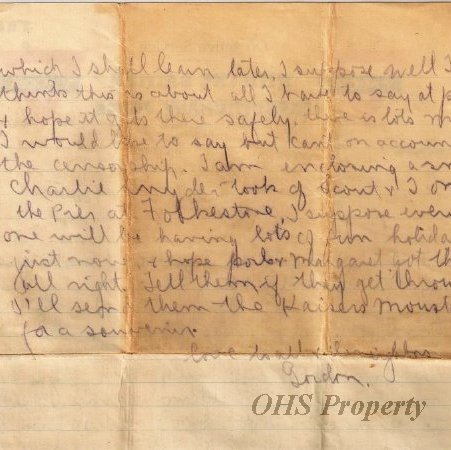 which I shall learn later, I suppose well I
thinks this is about all I have to say at p
& hope it gets there safely, there is lots m
I would like to say but cant on accoun
the censorship. I am enclosing a sn
Charlie Snyder took of Scout & I on
the Pier at Folkestone, I suppose every
one will be having lots of fun holida
just now & hope and Margaret got th
all right. Tell them if they get throu
I'll send them the Kaisers Moust
for a souvenir.
Love to all
Gordon.
OHS Property